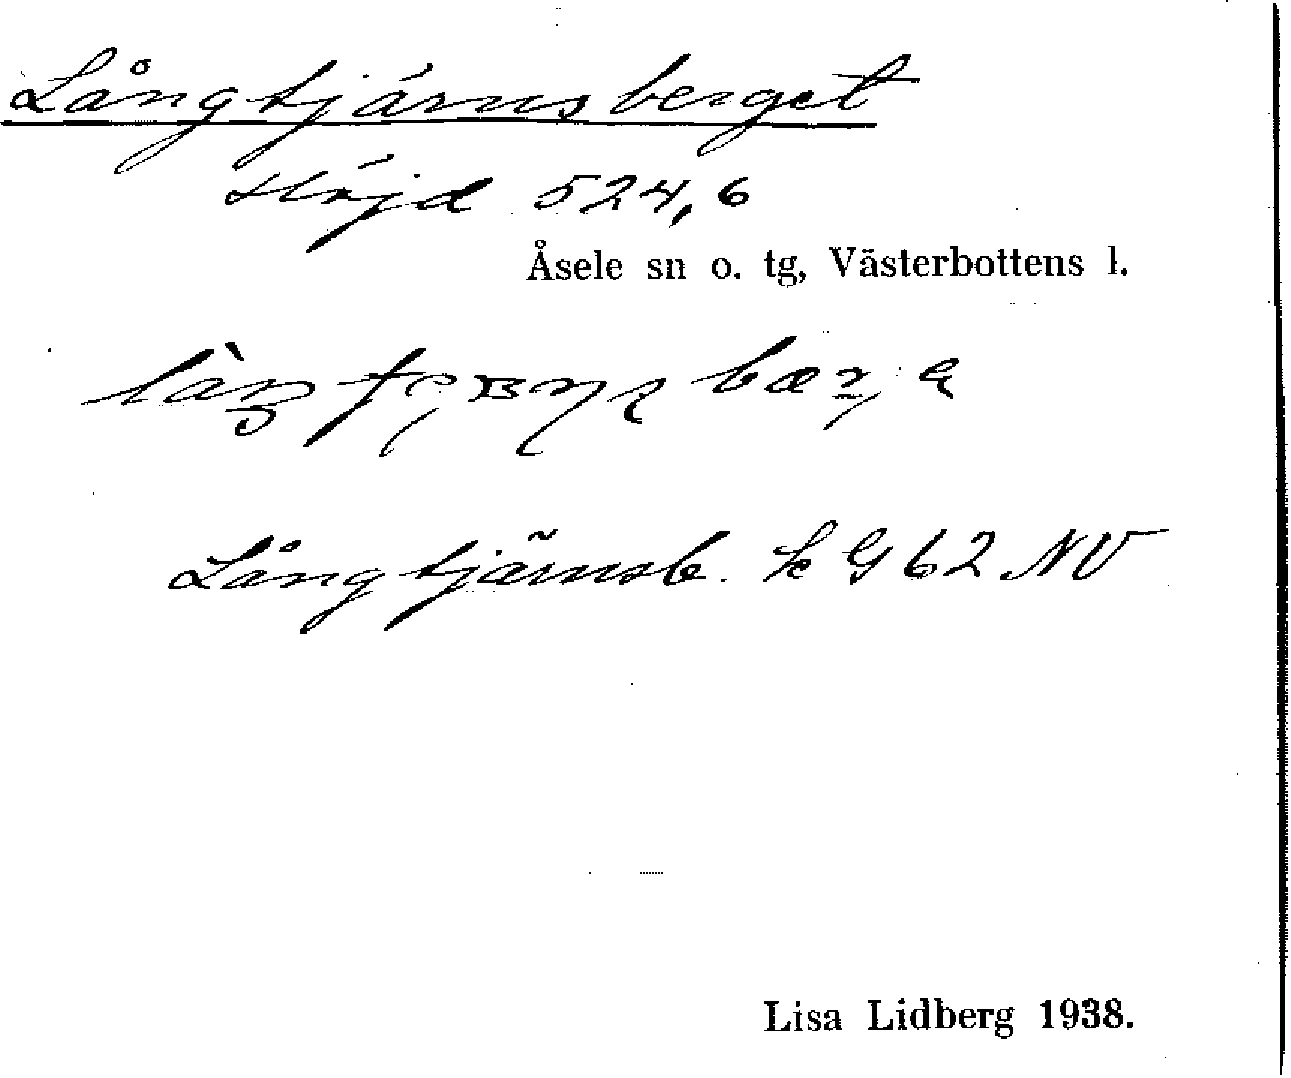 Långtjärnsberget
Höjd 524,6
Åsele sn o. tg, Västerbottens l.
Långtjärnsb. k G 62 NV
Lisa Lidberg 1938.